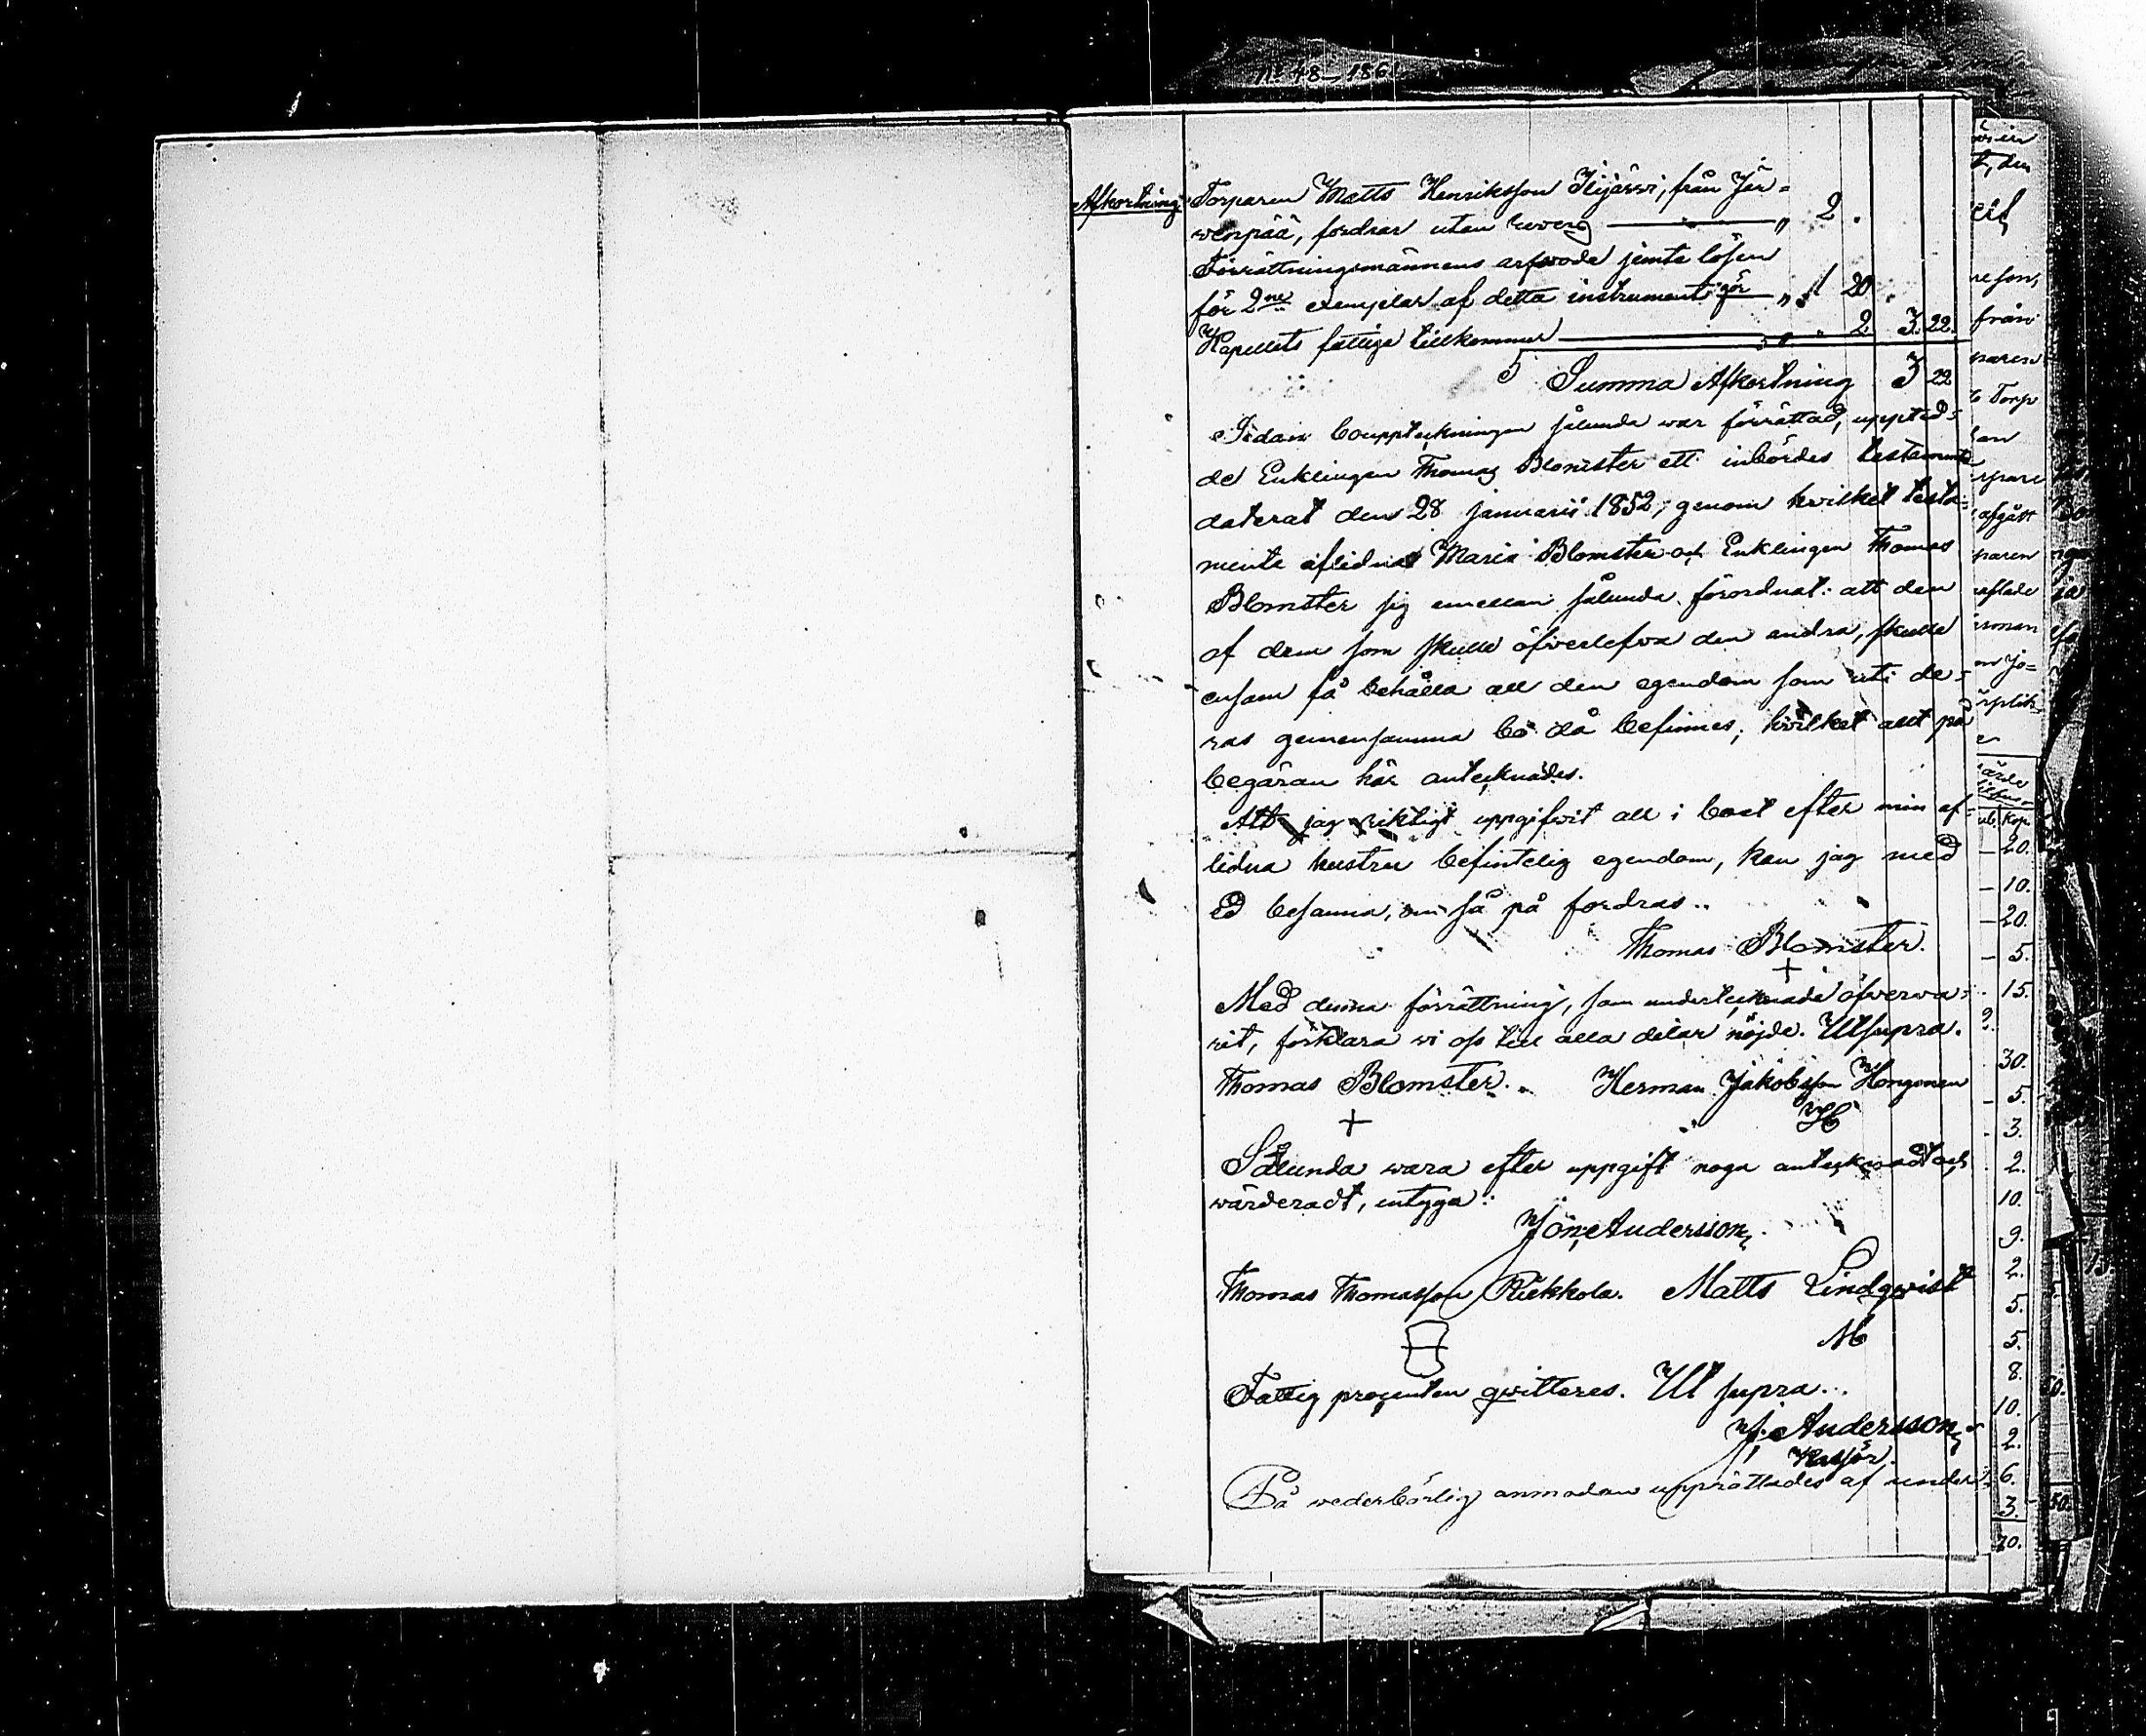 No 48, 186
Afkortning. Torparen Matts Henriksson Ilijärwi, från Jär=
wenpää, fordrar utan rewers — „ 2.
Förrättningsmännens arfwode jemte lösen
för 2ne exemplar af detta instrument gör — „ 1 20.
Kapellets fattige tillkommer — „ „ 2. 3. 22.
Summa Afkortning 3 22
Sedan bouppteckningen sålunda war förrättad, uppted=
de Enklingen Thomas Blomster ett inbördes testamente
daterat den 28 januarii 1852, genom hvilket testa=
mente aflidna Maria Blomster och Enklingen Thomas
Blomster sig emellan sålunda förordnat: att den
af dem som skulle öfverlefva den andra, skulle
ensam få behålla all den egendom som uti de=
ras gemensamma bo då befinnes; hvilket allt på
begäran här antecknades.
Att jag riktigt uppgifvit all i boet efter min af=
lidna hustru befintelig egendom, kan jag med
Ed besanna, om så på fordras..
Thomas Blomster.
+
Med denna förrättning, som undertecknade öfverva=
rit, förklara wi oss till alla delar nöjde. Utsupra.
Thomas Blomster. Herman Jakobsson Hongonen
+ H
Sålunda wara efter uppgift noga antecknadt och
wärderadt, intyga:
Jön; Andersson.
Thomas Thomasson Riekkola. Matts Lindqwist
M
Fattig procenten qwitteres. Ut supra..
J. Andersson
Kassör.
På wederbörlig anmodan upprättades af under=
t, den
från
paren
Torp
afgått
paren
aflade
Kop.
20.
10.
20.
5.
15.
2.
30.
5.
3.
2.
10.
9.
2.
5.
5.
8.
10.
2.
6.
3.